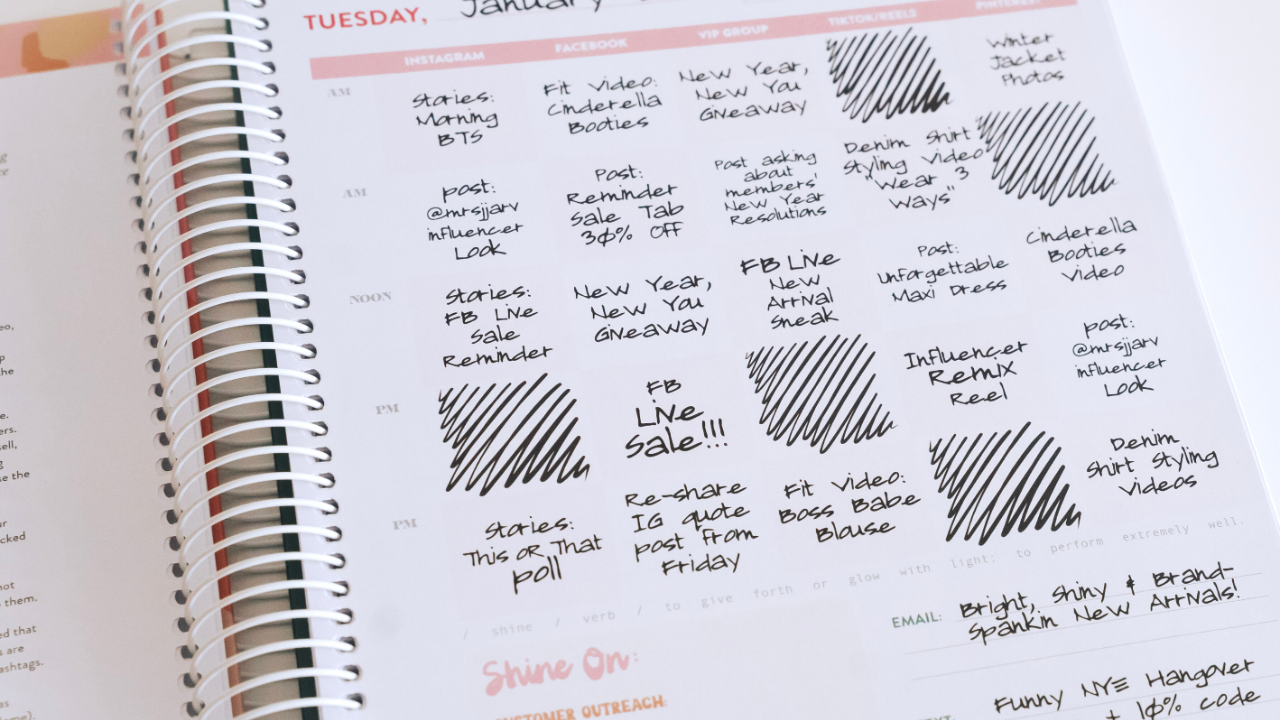 TUESDAY, January
INSTAGRAM FACEBOOK VIP GROUP TIKTOK/REELS PINTEREST
AM
Stories:
Morning
BTS
Fit Video:
Cinderella
Booties
New Year,
New You
Giveaway
Winter
Jacket
Photos
AM
post:
@mrsjjarv
influencer
Look
Post:
Reminder
Sale Tab
30% Off
Post asking
about
members'
New Year
Resolutions
Denim Shirt
Styling Video
"Wear 3
Ways"
NOON
Stories:
FB Live
Sale
Reminder
New Year,
New You
Giveaway
FB Live
New
Arrival
Sneak
Post:
Unforgettable
Maxi Dress
Cinderella
Booties
Video
PM
FB
Live
Sale!!!
Influencer
Remix
Reel
post:
@mrsjjarv
influencer
Look
PM
Stories:
This or That
poll
Re-share
IG quote
post from
Friday
Fit Video:
Boss Babe
Blouse
Denim
Shirt Styling
Videos
/ shine / verb / to give forth or glow with light; to perform extremely well.
Shine On:
CUSTOMER OUTREACH:
EMAIL: Bright, Shiny & Brand-
Spankin New Arrivals!
Funny NYE Hangover
+ 10% code